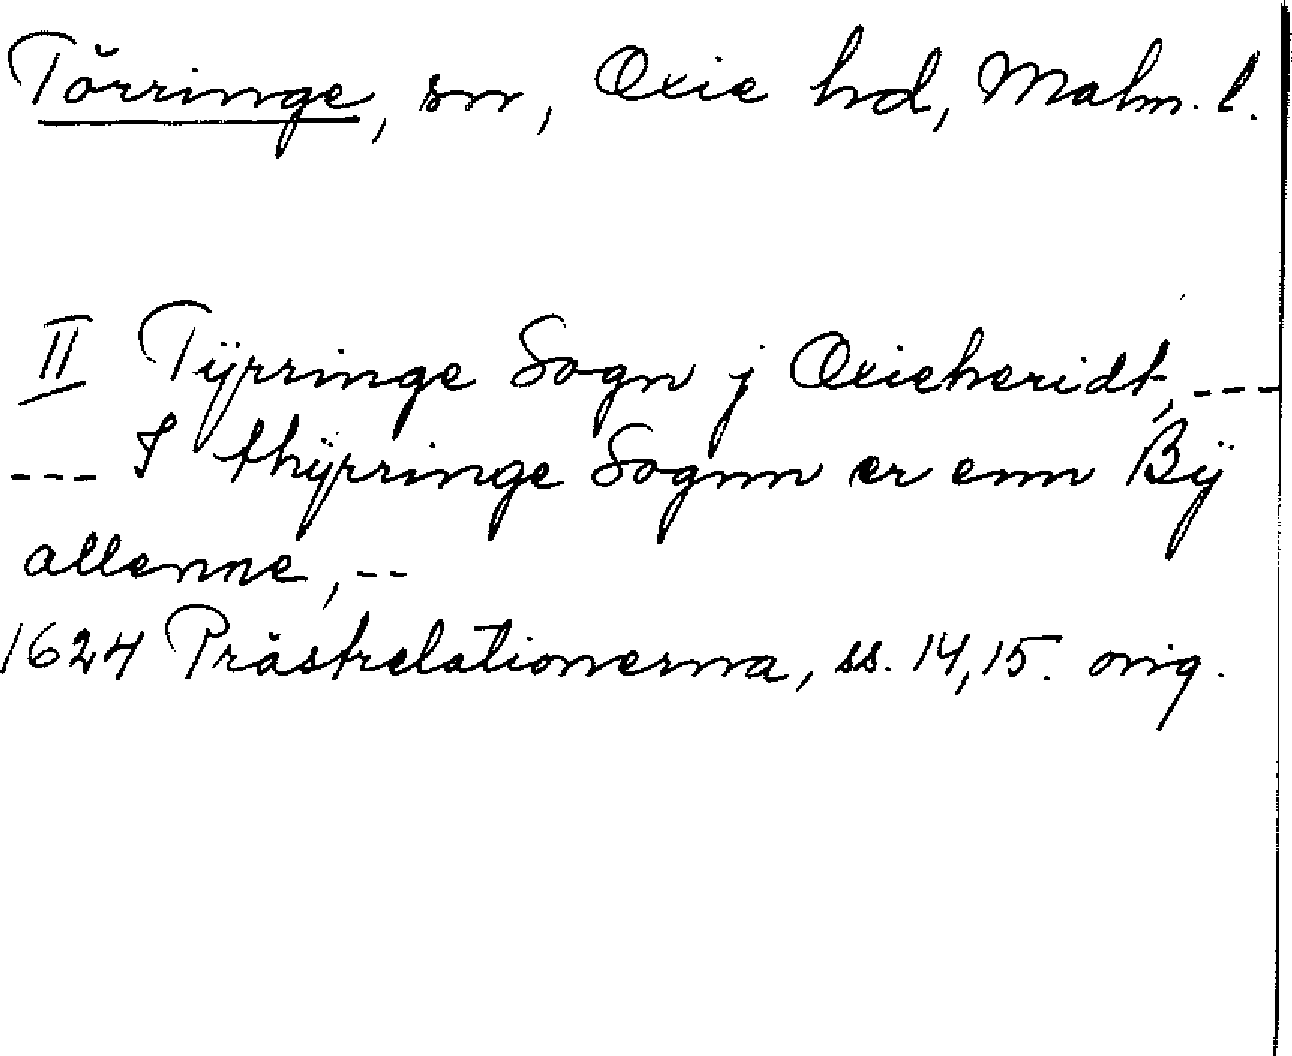 Törringe, sn, Oxie hd, Malm. l.
II Tÿrringe Sogn j Oxieheridt, ---
--- I thÿrringe Sognn er enn Bÿ
allenne, --
1624 Prästrelationerna, ss. 14, 15. orig.